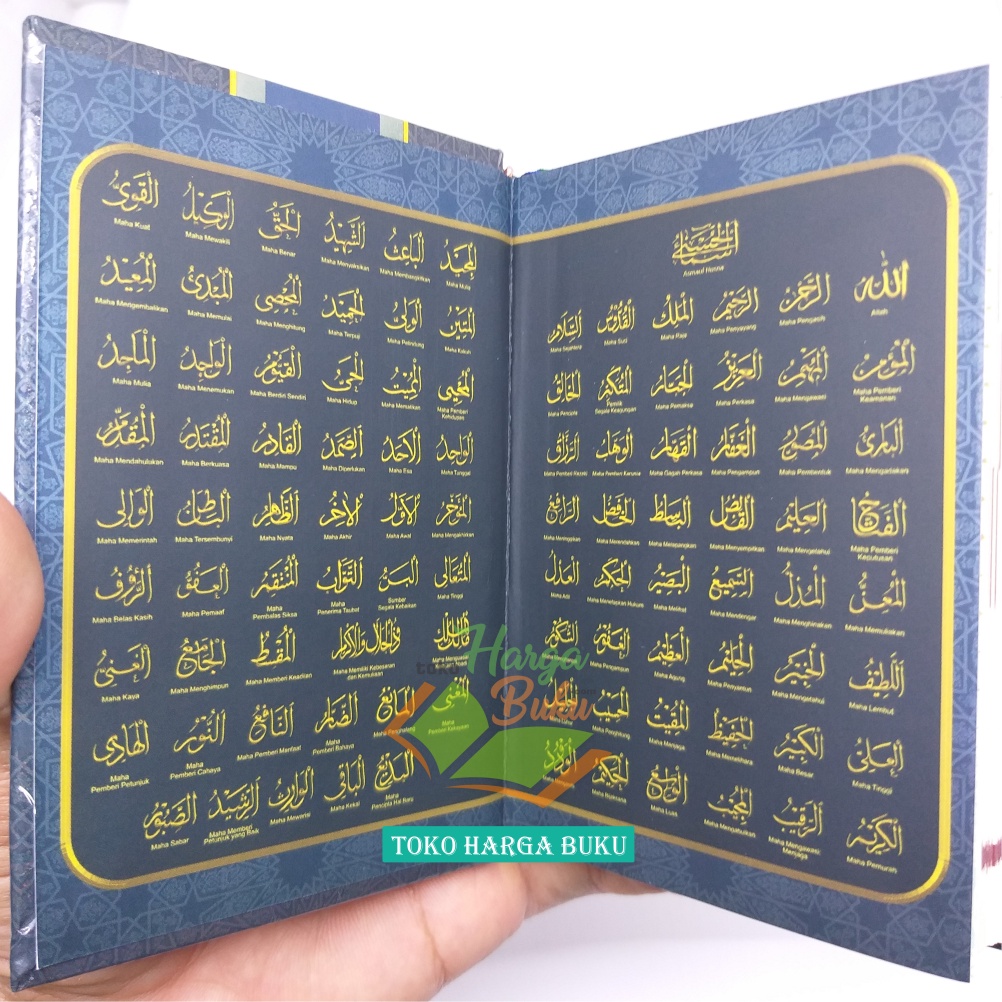 أسماء الحسنى
Asmaul Husna
الله الرحمن الرحيم الملك القدوس السلام
Allah Maha Pengasih Maha Penyayang Maha Raja Maha Suci Maha Sejahtera
المؤمن المهيمن العزيز الجبار المتكبر الخالق
Maha Pemberi Keamanan Maha Mengawasi Maha Perkasa Maha Pemaksa Pemilik Segala Keagungan Maha Pencipta
البارئ المصور الغفار القهار الوهاب الرزاق
Maha Mengadakan Maha Pembentuk Maha Pengampun Maha Gagah Perkasa Maha Pemberi Karunia Maha Pemberi Rezeki
الفتاح العليم القابض الباسط الخافض الرافع
Maha Pemberi Keputusan Maha Mengetahui Maha Menyempitkan Maha Merendahkan Maha Meninggikan
المعز المذل السميع البصير الحكم العدل
Maha Memuliakan Maha Menghinakan Maha Mendengar Maha Melihat Maha Menetapkan Hukum Maha Adil
اللطيف الخبير الحليم العظيم الغفور الشكور
Maha Lembut Maha Mengetahui Maha Penyantun Maha Agung Maha Pengampun
العلي الكبير الحفيظ المقيت الحسيب
Maha Tinggi Maha Besar Maha Memelihara Maha Menjaga Maha Penghitung
الكريم الرقيب المجيب الواسع الحكيم الودود
Maha Pemurah Maha Mengawasi/Menjaga Maha Mengabulkan Maha Luas Maha Bijaksana
المجيد الباعث الشهيد الحق الوكيل القوي
Maha Mulia Maha Membangkitkan Maha Menyaksikan Maha Benar Maha Mewakili Maha Kuat
المتين الولي الحميد المحصي المبدئ المعيد
Maha Kukuh Maha Pelindung Maha Terpuji Maha Menghitung Maha Memulai Maha Mengembalikan
المحيي المميت الحي القيوم الواجد الماجد
Maha Pemberi Kehidupan Maha Mematikan Maha Hidup Maha Berdiri Sendiri Maha Menemukan Maha Mulia
الواحد الأحد الصمد القادر المقتدر المقدم
Maha Tunggal Maha Esa Maha Diperlukan Maha Mampu Maha Berkuasa Maha Mendahulukan
المؤخر الأول الآخر الظاهر الباطن الوالي
Maha Mengakhirkan Maha Awal Maha Akhir Maha Nyata Maha Tersembunyi Maha Memerintah
المتعالي البر التواب المنتقم العفو الرؤوف
Maha Tinggi Sumber Segala Kebaikan Maha Penerima Taubat Maha Pembalas Siksa Maha Pemaaf Maha Belas Kasih
مالك الملك ذو الجلال والإكرام المقسط الجامع الغني
Maha Memiliki Kebesaran dan Kemuliaan Maha Memberi Keadilan Maha Menghimpun Maha Kaya
المغني المانع الضار النافع النور الهادي
Maha Pemberi Bahaya Maha Pemberi Manfaat Maha Pemberi Cahaya Maha Pemberi Petunjuk
البديع الباقي الوارث الرشيد الصبور
Maha Pencipta Hal Baru Maha Kekal Maha Mewarisi Maha Memberi Petunjuk yang Baik Maha Sabar
toko Harga Buku
TOKO HARGA BUKU